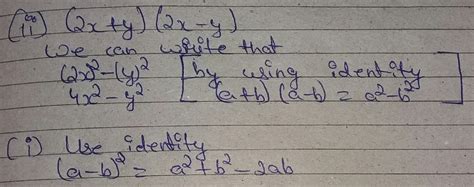 (ii) (2x+y) (2x-y)
We can write that
(2x)² - (y)² [by using identity
4x² - y² (a+b) (a-b) = a² - b²]
(i) Use identity
(a-b)² = a² + b² - 2ab